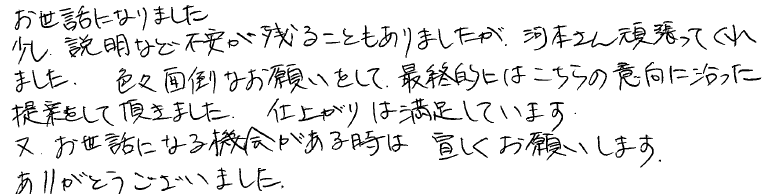 お世話になりました
少し、説明など不安が残ることもありましたが、河本さん頑張ってくれ
ました。色々面倒なお願いをして、最終的にはこちらの意向に沿った
提案をして頂きました。仕上がりは満足しています。
又、お世話になる機会がある時は宜しくお願いします。
ありがとうございました。